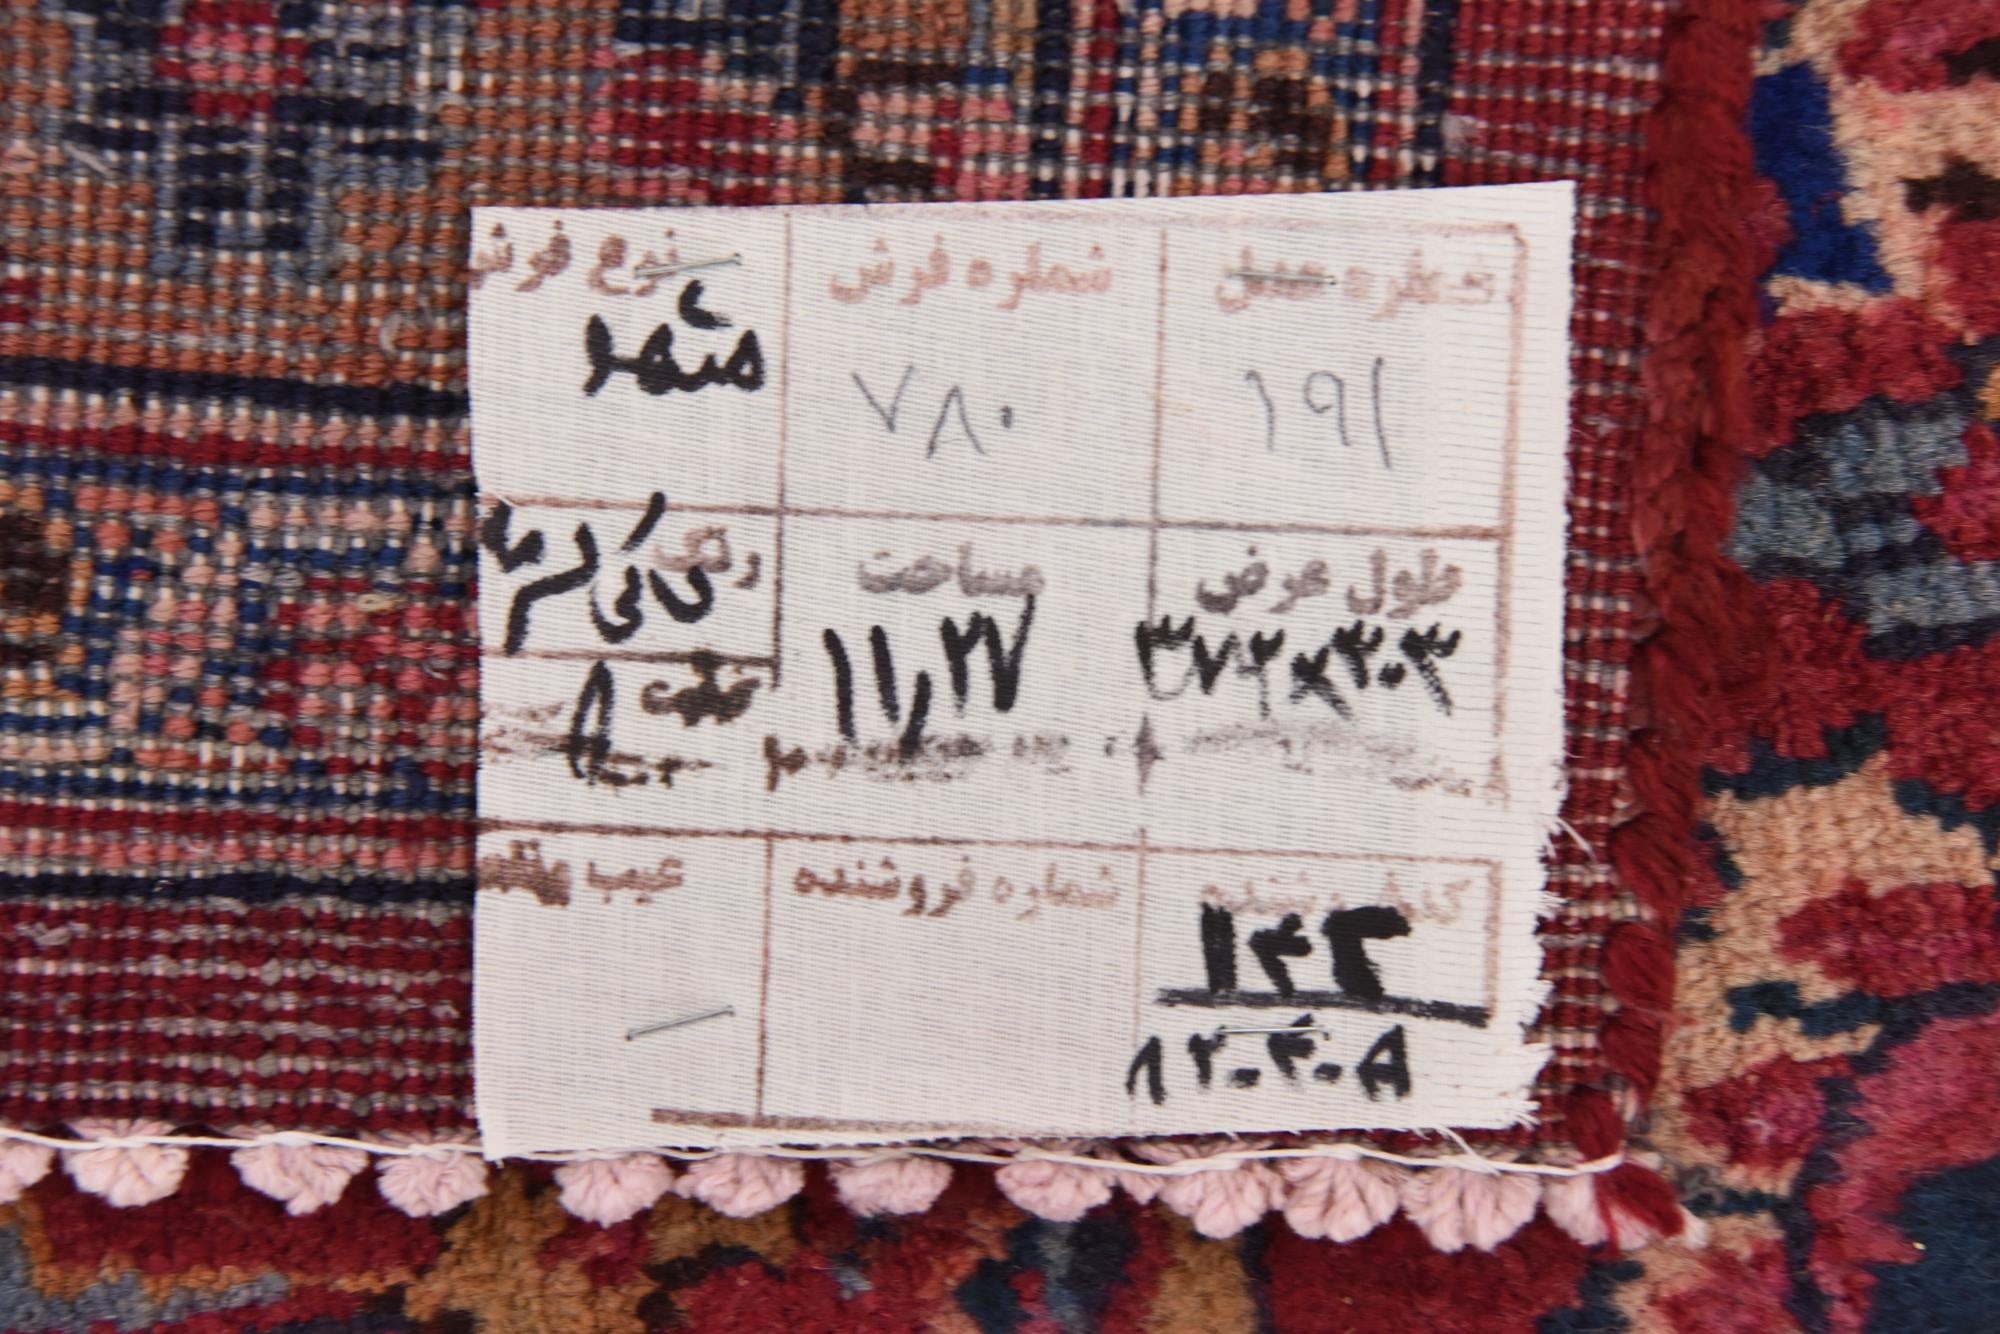 شماره عدل شماره فرش نوع فرش
۱۹۱ ۷۸۰ مشهد
طول عرض مساحت رنگ
۳۷۲x۳۰۳ ۱۱,۲۷
۸
کد فروشنده شماره فروشنده عیب
۱۴۲
۸۲۰۴۰۸